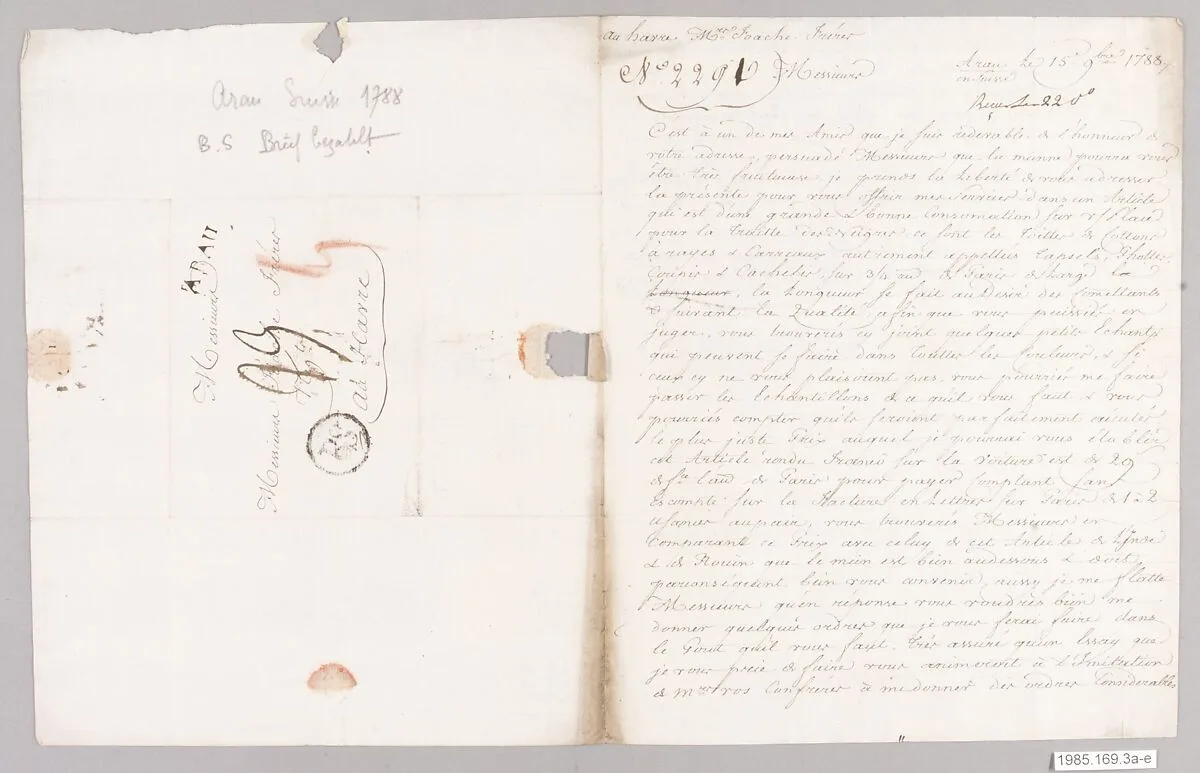 Arau Suisse 1788
B.S
ARAU
Messieurs
Messieurs Frères
au Havre
au havre Mrs. foache Frères
No. 2291 Messieurs
Arau le 15e 9bre 1788
en Suisse
C'est à un de mes Amis que je suis redevable de l'honneur de
votre adresse, persuadé Messieurs que la mienne pourra vous
être très fructueuse je prends la Liberté de vous adresser
la présente pour vous offrir mes services dans un Article
qui est d'une grande & bonne Consomation sur v/ place
pour la traitte des Nègres ce sont les toilles de Cottons
à rayes & Carreaux autrement appellés Tapsels, Cholles
& Cachelas sur 3/4 aud de Paris de Large la
Longueur, la Longueur se fait au desir des Comettants
& suivant la Qualité afin que vous puissiés en
juger, vous trouverés cy joint quelques petits Echants
qui peuvent se faire dans toutes les Couleurs, & si
ceux cy ne vous plaisoient pas, vous pourriés me faire
passer les Echantillons de ce qu'il vous faut & vous
pourriés compter qu'ils seroient parfaitement exécutés
le plus juste Prix auquel je pourrai vous établir
cet Article rendu franco sur la voiture est de 29
de fce l'aud de Paris pour payer Comptant Sans
Escompte sur la Facture en Lettres sur Paris de 1 à 2
usances au pair, vous trouverés Messieurs en
Comparant ce Prix avec celuy de cet Article de l'Inde
& de Rouen que le mien est bien audessous & doit
par conséquent bien vous convenir, aussy je me flatte
Messieurs qu'en réponse vous voudrés bien me
donner quelques ordres que je vous ferai faire dans
le Gout qu'il vous faut. très assuré qu'un Essay que
je vous prie de faire vous animeroit à l'Imittation
de Mrs. vos Confrères à me donner des ordres Considerables
1985.169.3a-e